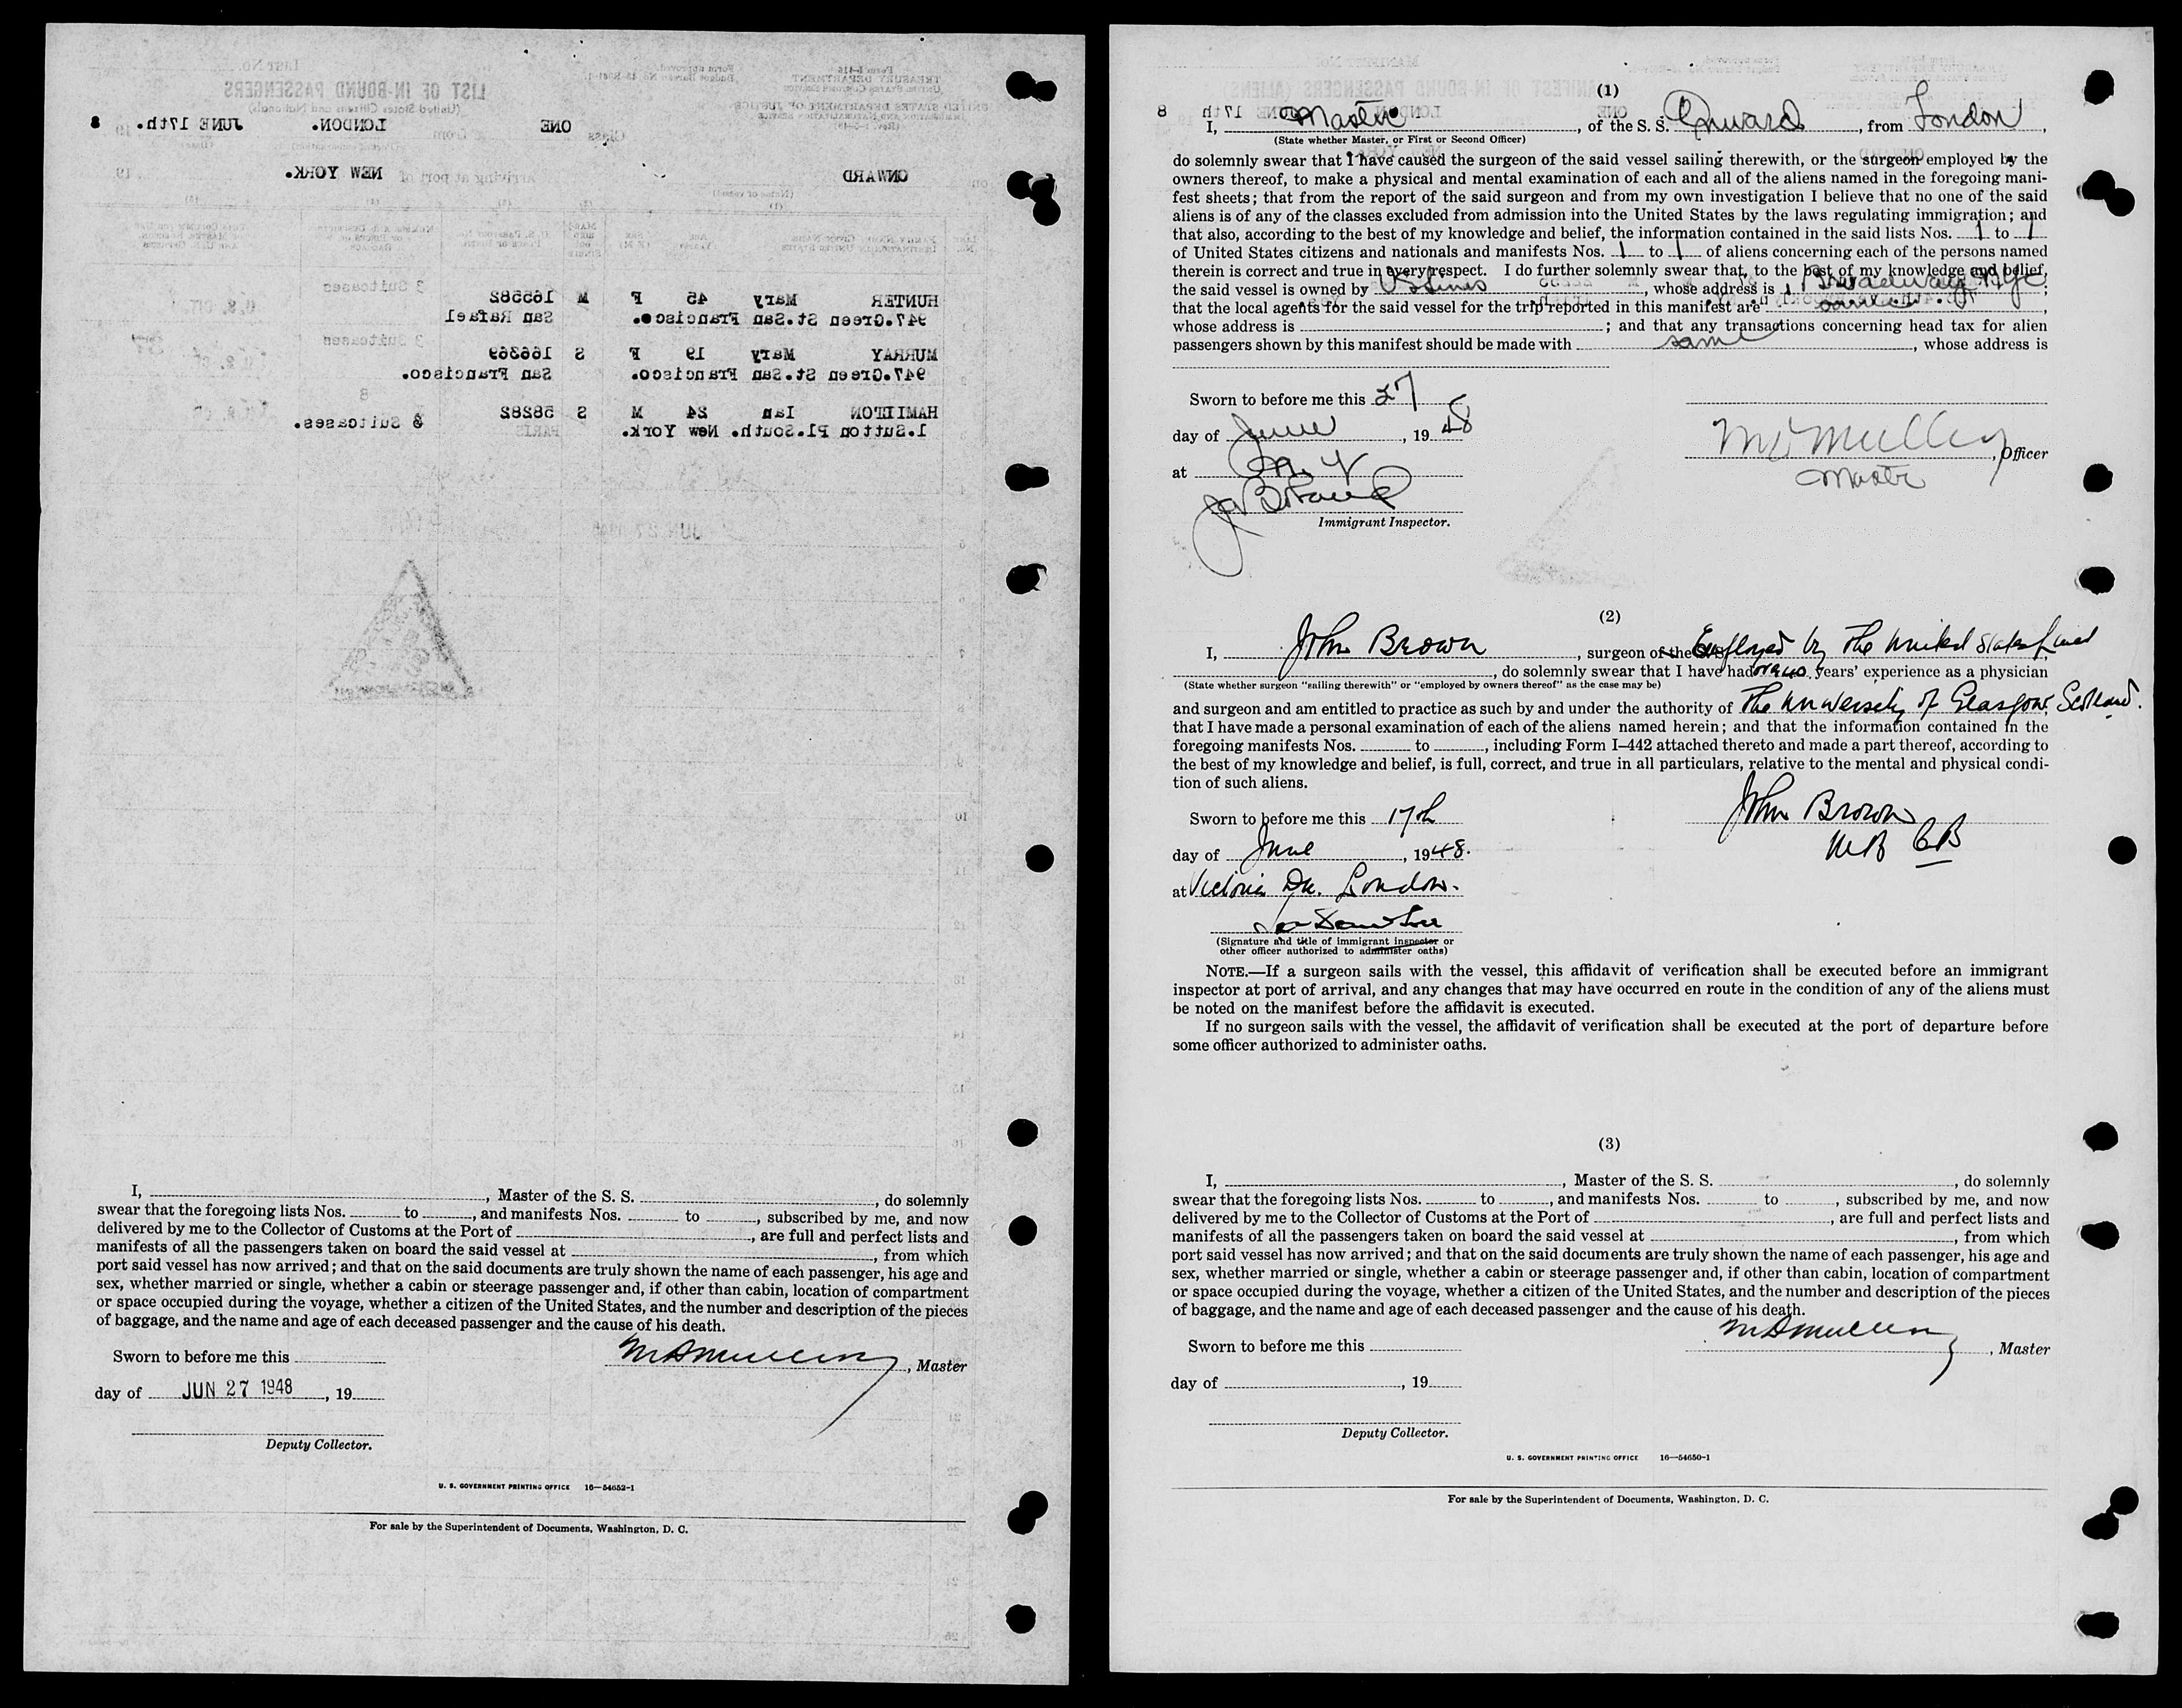 LIST OF IN-BOUND PASSENGERS
(United States Citizens and Nationals)
ONE LONDON. JUNE 17th. 8
ONWARD Arriving at port of NEW YORK.
HUNTER Mary 45 F M 165582 3 Suitcases
947.Green St.San Francisco. San Rafael
MURRAY Mary 19 F S 166369 3 Suitcases
947.Green St.San Francisco. San Francisco.
HAMILTON Ian 24 M S 58282 8 Suitcases.
1.Sutton Pl.South. New York. PARIS
JUN 27 1948
I, , Master of the S. S. , do solemnly
swear that the foregoing lists Nos. to , and manifests Nos. to , subscribed by me, and now
delivered by me to the Collector of Customs at the Port of , are full and perfect lists and
manifests of all the passengers taken on board the said vessel at , from which
port said vessel has now arrived; and that on the said documents are truly shown the name of each passenger, his age and
sex, whether married or single, whether a cabin or steerage passenger and, if other than cabin, location of compartment
or space occupied during the voyage, whether a citizen of the United States, and the number and description of the pieces
of baggage, and the name and age of each deceased passenger and the cause of his death.
Sworn to before me this
, Master
day of JUN 27 1948, 19
Deputy Collector.
U. S. GOVERNMENT PRINTING OFFICE 16—54652-1
For sale by the Superintendent of Documents, Washington, D. C.
(1)
I, Master, of the S. S. Onward, from London,
(State whether Master, or First or Second Officer)
do solemnly swear that I have caused the surgeon of the said vessel sailing therewith, or the surgeon employed by the
owners thereof, to make a physical and mental examination of each and all of the aliens named in the foregoing mani-
fest sheets; that from the report of the said surgeon and from my own investigation I believe that no one of the said
aliens is of any of the classes excluded from admission into the United States by the laws regulating immigration; and
that also, according to the best of my knowledge and belief, the information contained in the said lists Nos. 1 to 1
of United States citizens and nationals and manifests Nos. 1 to 1 of aliens concerning each of the persons named
therein is correct and true in every respect. I do further solemnly swear that, to the best of my knowledge and belief,
the said vessel is owned by US Lines, whose address is 1 Broadway NYC;
that the local agents for the said vessel for the trip reported in this manifest are same,
whose address is ; and that any transactions concerning head tax for alien
passengers shown by this manifest should be made with same, whose address is
Sworn to before me this 27
day of June, 1948
at N.Y.
, Officer
Master
Immigrant Inspector.
(2)
I, John Brown, surgeon of the S. S. Employed by The United States Lines
, do solemnly swear that I have had years' experience as a physician
(State whether surgeon "sailing therewith" or "employed by owners thereof" as the case may be)
and surgeon and am entitled to practice as such by and under the authority of The University of Glasgow, Scotland.
that I have made a personal examination of each of the aliens named herein; and that the information contained in the
foregoing manifests Nos. to , including Form I–442 attached thereto and made a part thereof, according to
the best of my knowledge and belief, is full, correct, and true in all particulars, relative to the mental and physical condi-
tion of such aliens.
Sworn to before me this 17th
John Brown
MB CB
day of June, 1948.
at Victoria Dk. London.
(Signature and title of immigrant inspector or
other officer authorized to administer oaths)
NOTE.—If a surgeon sails with the vessel, this affidavit of verification shall be executed before an immigrant
inspector at port of arrival, and any changes that may have occurred en route in the condition of any of the aliens must
be noted on the manifest before the affidavit is executed.
If no surgeon sails with the vessel, the affidavit of verification shall be executed at the port of departure before
some officer authorized to administer oaths.
(3)
I, , Master of the S. S. , do solemnly
swear that the foregoing lists Nos. to , and manifests Nos. to , subscribed by me, and now
delivered by me to the Collector of Customs at the Port of , are full and perfect lists and
manifests of all the passengers taken on board the said vessel at , from which
port said vessel has now arrived; and that on the said documents are truly shown the name of each passenger, his age and
sex, whether married or single, whether a cabin or steerage passenger and, if other than cabin, location of compartment
or space occupied during the voyage, whether a citizen of the United States, and the number and description of the pieces
of baggage, and the name and age of each deceased passenger and the cause of his death.
Sworn to before me this
, Master
day of , 19
Deputy Collector.
U. S. GOVERNMENT PRINTING OFFICE 16—54650-1
For sale by the Superintendent of Documents, Washington, D. C.